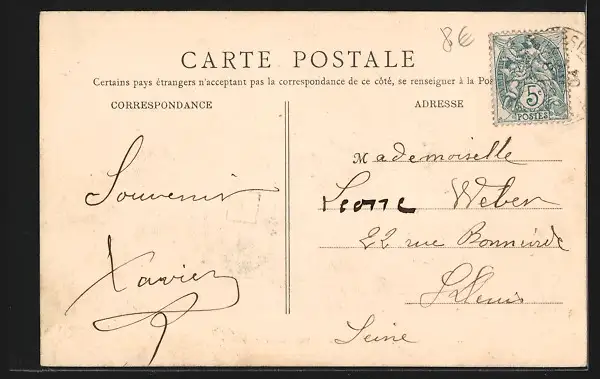 8€
CARTE POSTALE
Certains pays étrangers n'acceptant pas la correspondance de ce côté, se renseigner à la Pos
CORRESPONDANCE
ADRESSE
Souvenir
Xavier
Mademoiselle
Leone Weber
22 rue
St Denis
Seine
5c
POSTES